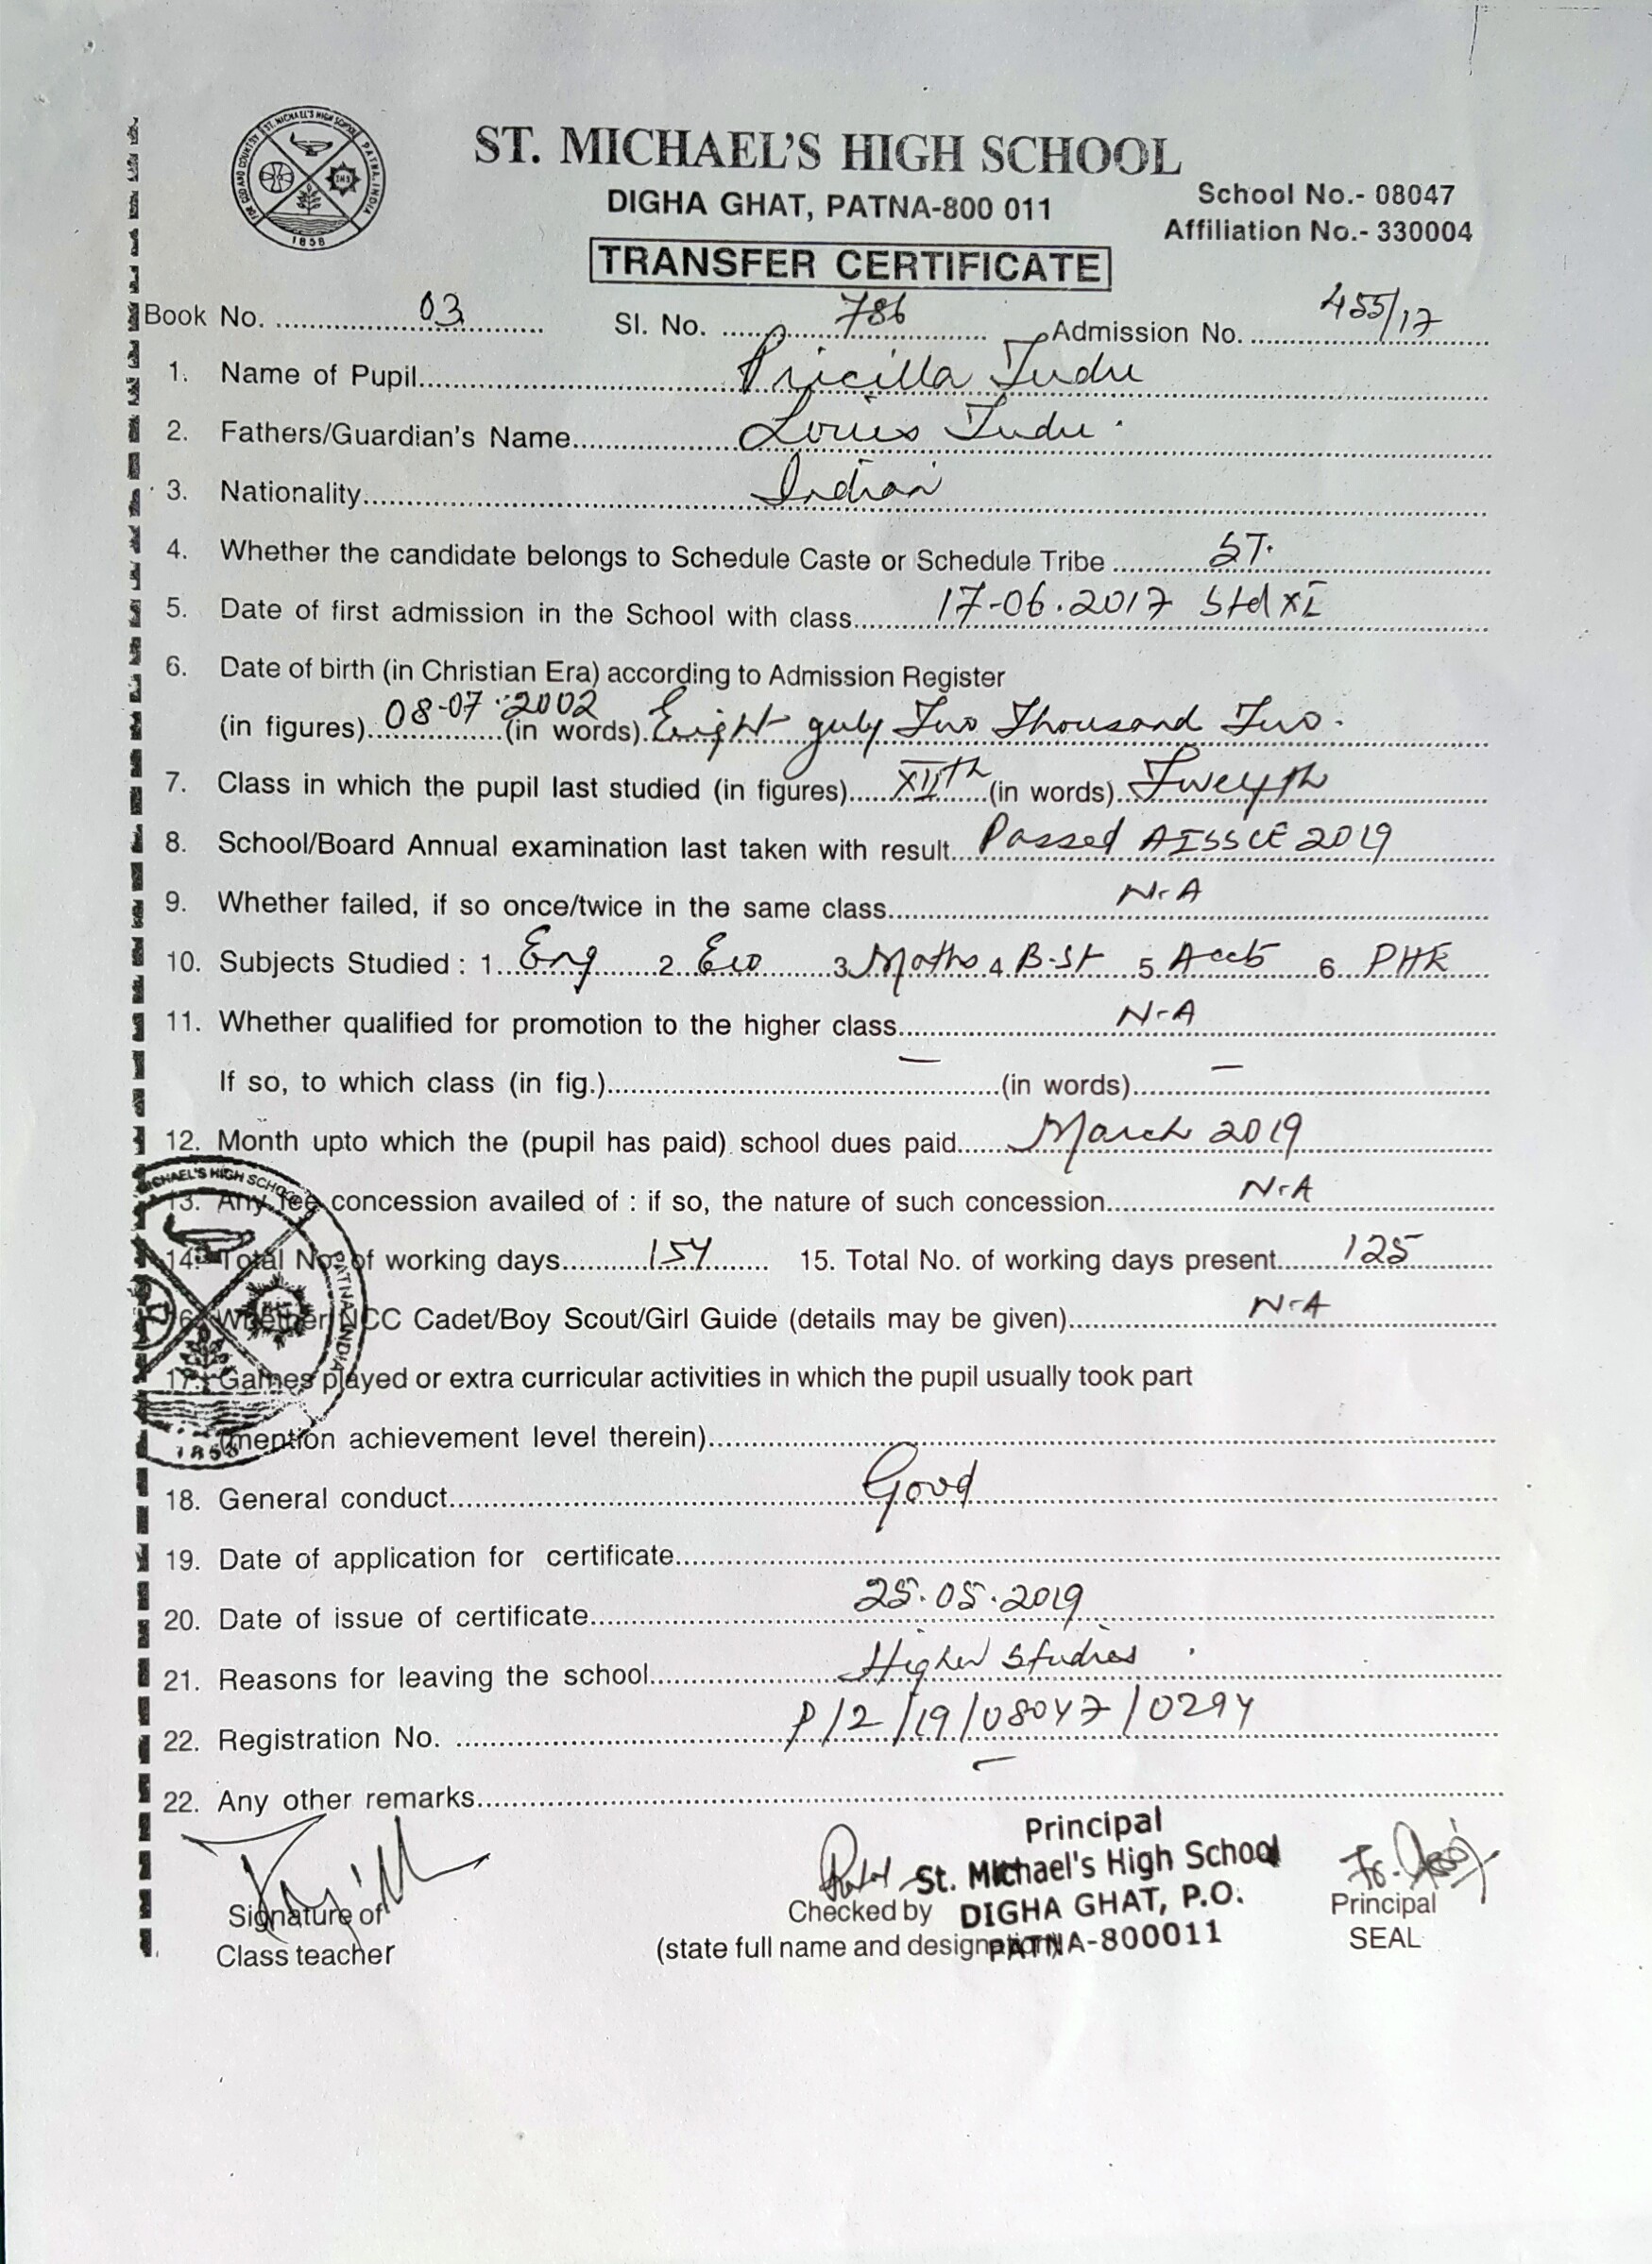 FOR GOD AND COUNTRY ST. MICHAEL'S HIGH SCHOOL PATNA, INDIA
IHS
1858
ST. MICHAEL'S HIGH SCHOOL
DIGHA GHAT, PATNA-800 011
School No.- 08047
Affiliation No.- 330004
TRANSFER CERTIFICATE
Book No. 03 Sl. No. 786 Admission No. 455/17
1. Name of Pupil Pricilla Tudu
2. Fathers/Guardian's Name Louis Tudu.
3. Nationality Indian
4. Whether the candidate belongs to Schedule Caste or Schedule Tribe ST.
5. Date of first admission in the School with class 17-06.2017 Std XI
6. Date of birth (in Christian Era) according to Admission Register
(in figures) 08-07.2002 (in words) Eight July Two Thousand Two.
7. Class in which the pupil last studied (in figures) XIIth (in words) Twelfth
8. School/Board Annual examination last taken with result Passed AISSCE 2019
9. Whether failed, if so once/twice in the same class N-A
10. Subjects Studied : 1. Eng 2. Eco 3. Maths 4. B-St 5. Accts 6. PHE
11. Whether qualified for promotion to the higher class N-A
If so, to which class (in fig.) — (in words) —
12. Month upto which the (pupil has paid) school dues paid March 2019
13. Any fee concession availed of : if so, the nature of such concession N-A
14. Total No. of working days 154 15. Total No. of working days present 125
16. Whether NCC Cadet/Boy Scout/Girl Guide (details may be given) N-A
17. Games played or extra curricular activities in which the pupil usually took part
(mention achievement level therein)
MICHAEL'S HIGH SCHOOL PATNA, INDIA
1858
18. General conduct Good
19. Date of application for certificate
20. Date of issue of certificate 25.05.2019
21. Reasons for leaving the school Higher Studies
22. Registration No. P/2/19/08047/0294
22. Any other remarks —
Principal
St. Michael's High School
DIGHA GHAT, P.O.
PATNA-800011
Signature of
Class teacher
Checked by
(state full name and designation)
Principal
SEAL